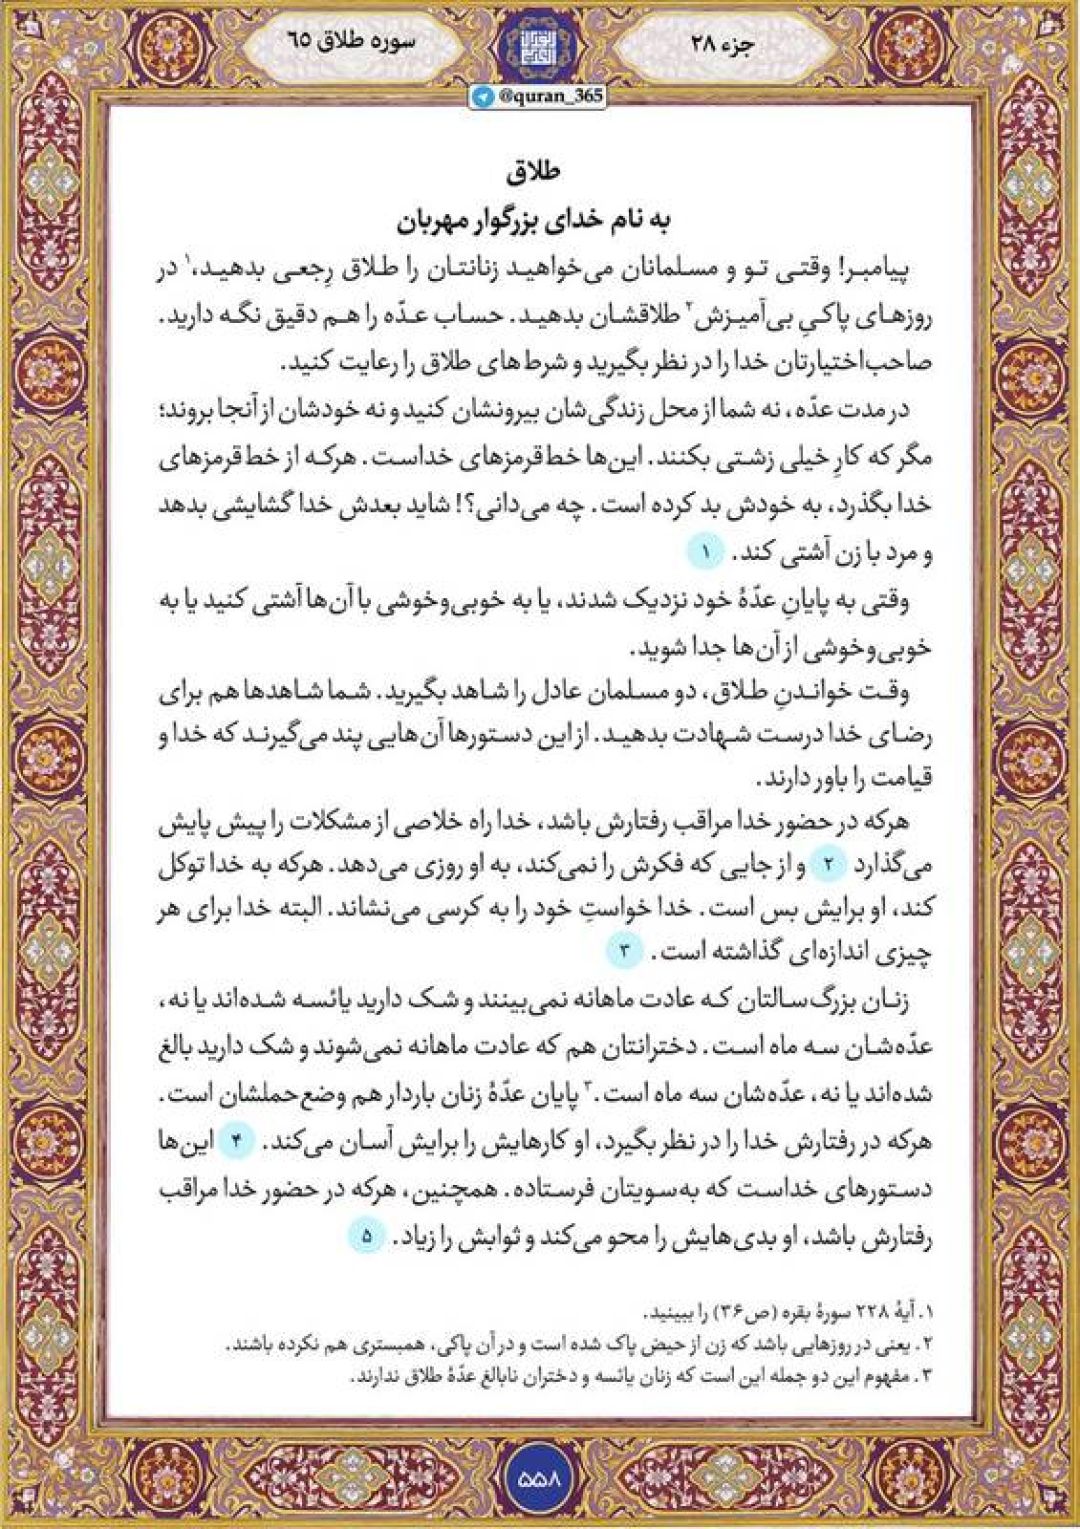 جزء ۲۸
سوره طلاق ۶۵
@quran_365
طلاق
به نام خدای بزرگوار مهربان
پیامبر! وقتی تو و مسلمانان می‌خواهید زنانتان را طلاق رِجعی بدهید،۱ در
روزهای پاکیِ بی‌آمیزش۲ طلاقشان بدهید. حساب عدّه را هم دقیق نگه دارید.
صاحب‌اختیارتان خدا را در نظر بگیرید و شرط‌های طلاق را رعایت کنید.
در مدت عدّه، نه شما از محل زندگی‌شان بیرونشان کنید و نه خودشان از آنجا بروند؛
مگر که کارِ خیلی زشتی بکنند. این‌ها خط‌قرمزهای خداست. هرکه از خط‌قرمزهای
خدا بگذرد، به خودش بد کرده است. چه می‌دانی؟! شاید بعدش خدا گشایشی بدهد
و مرد با زن آشتی کند. ۱
وقتی به پایانِ عدّهٔ خود نزدیک شدند، یا به خوبی‌وخوشی با آن‌ها آشتی کنید یا به
خوبی‌وخوشی از آن‌ها جدا شوید.
وقت خواندنِ طلاق، دو مسلمان عادل را شاهد بگیرید. شما شاهدها هم برای
رضای خدا درست شهادت بدهید. از این دستورها آن‌هایی پند می‌گیرند که خدا و
قیامت را باور دارند.
هرکه در حضور خدا مراقب رفتارش باشد، خدا راه خلاصی از مشکلات را پیش پایش
می‌گذارد ۲ و از جایی که فکرش را نمی‌کند، به او روزی می‌دهد. هرکه به خدا توکل
کند، او برایش بس است. خدا خواستِ خود را به کرسی می‌نشاند. البته خدا برای هر
چیزی اندازه‌ای گذاشته است. ۳
زنـان بزرگ‌سالتان که عادت ماهانه نمی‌بینند و شک دارید یائسه شده‌اند یا نه،
عدّه‌شان سه ماه است. دخترانتان هم که عادت ماهانه نمی‌شوند و شک دارید بالغ
شده‌اند یا نه، عدّه‌شان سه ماه است.۳ پایان عدّهٔ زنان باردار هم وضع‌حملشان است.
هرکه در رفتارش خدا را در نظر بگیرد، او کارهایش را برایش آسان می‌کند. ۴ این‌ها
دستورهای خداست که به‌سویتان فرستاده. همچنین، هرکه در حضور خدا مراقب
رفتارش باشد، او بدی‌هایش را محو می‌کند و ثوابش را زیاد. ۵
۱. آیهٔ ۲۲۸ سورهٔ بقره (ص۳۶) را ببینید.
۲. یعنی در روزهایی باشد که زن از حیض پاک شده است و در آن پاکی، همبستری هم نکرده باشند.
۳. مفهوم این دو جمله این است که زنان یائسه و دختران نابالغ عدّهٔ طلاق ندارند.
۵۵۸